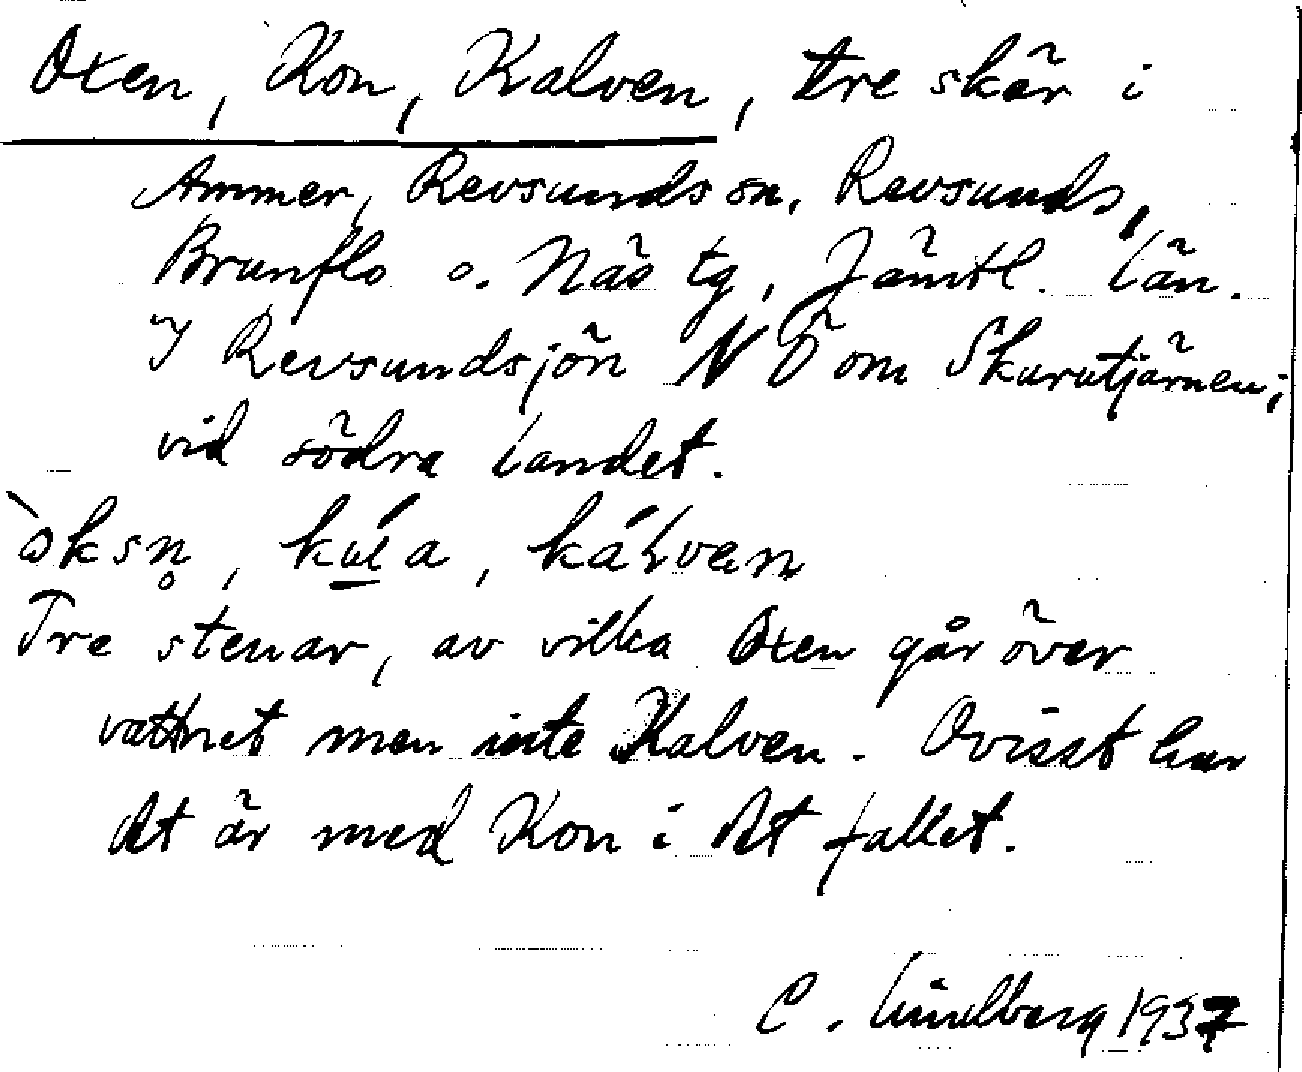 Oxen, Kon, Kalven, tre skär i
Ammer, Revsunds sn, Revsunds,
Brunflo o. Näs tg, Jämtl. län.
I Revsundsjön NÖ om Skurutjärnen;
vid södra landet.
kálven
Tre stenar, av vilka Oxen går över
vattnet men inte Kalven. Ovisst hur
det är med Kon i det fallet.
C. Lindberg 1937